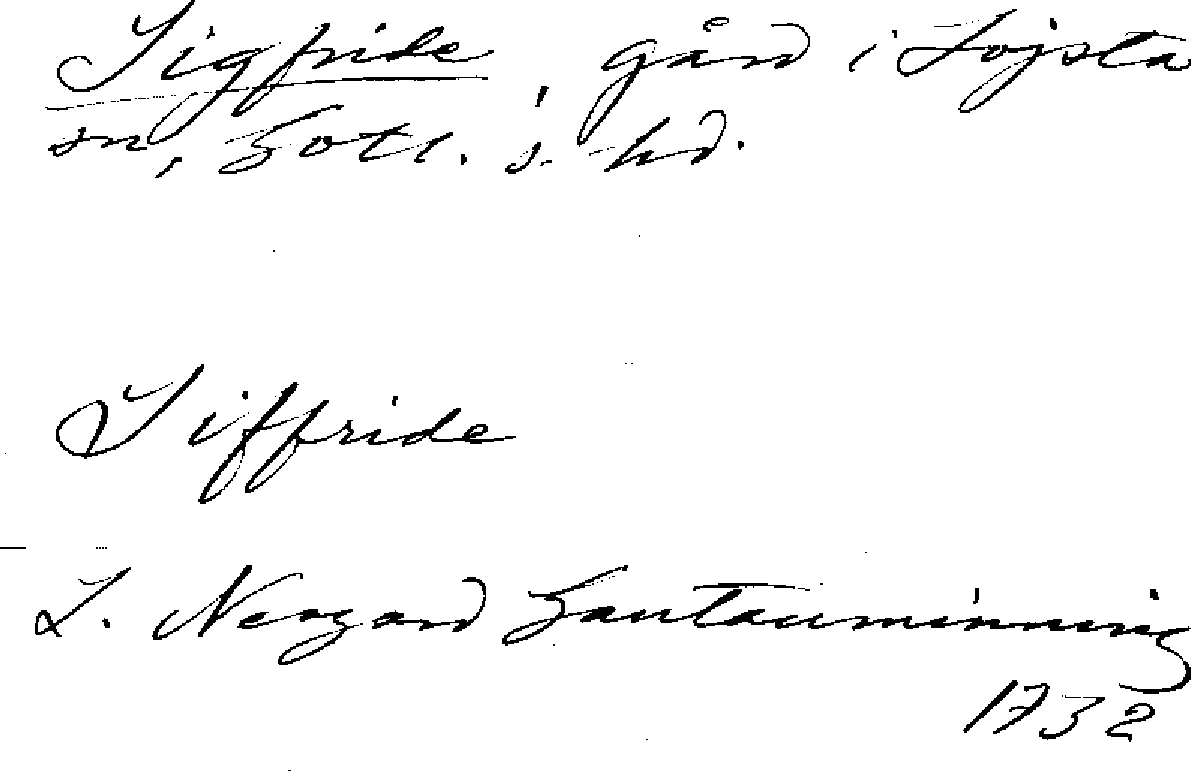 Sigfride, gård i Lojsta
sn, Gotl. s. hd.
Siffride
L. Nergard Gautauminning
1732